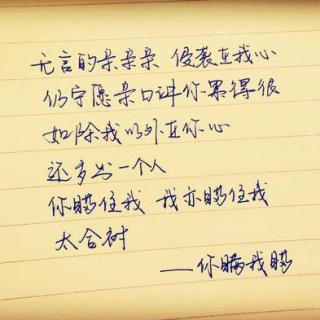 无言的亲亲亲 侵袭在我心
仍宁愿亲口讲你累得很
如除我以外在你心
还多出一个人
你瞒住我 我亦瞒住我
太合衬
——你瞒我瞒